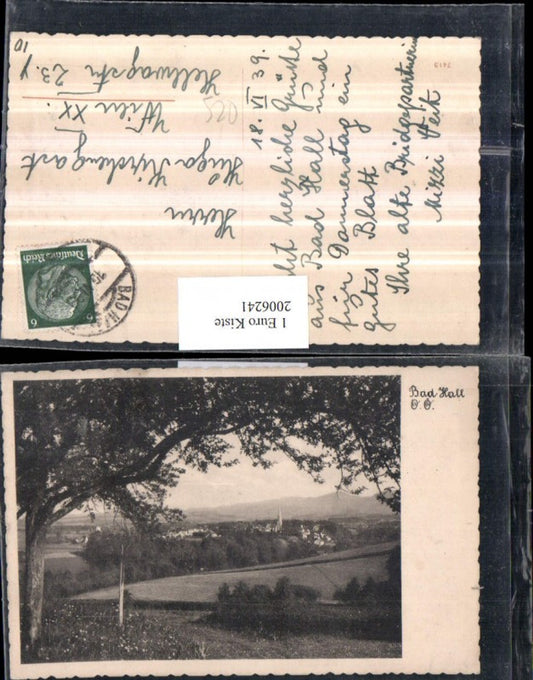 18. VI 39.
herzliche Grüße
aus Bad Hall und
für Donnerstag ein
gutes Blatt
Ihre alte Bridgepartnerin
Mizzi Veit
7413
Herrn
Hugo
Wien XX.
Hellwagstr 23. 
10
Deutsches Reich
6 6
BAD HALL
1 Euro Kiste
2006241
Bad Hall
O. Ö.